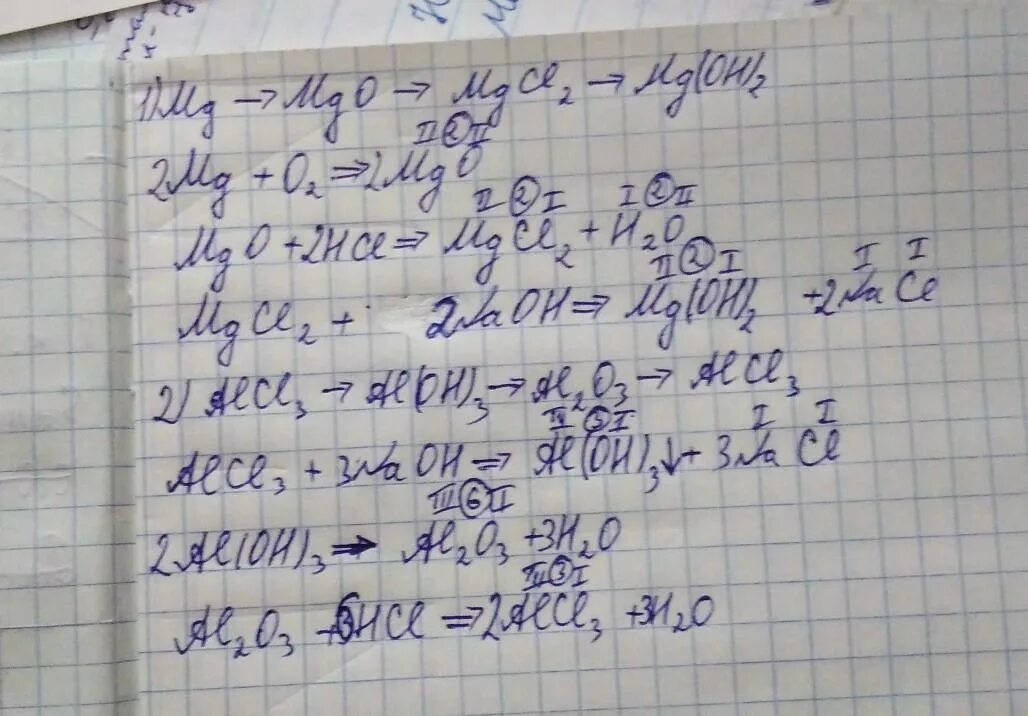 1) Mg → MgO → MgCl₂ → Mg(OH)₂
II ② II
2Mg + O₂ ⇒ 2MgO
II ② I I ② II
MgO + 2HCl ⇒ MgCl₂ + H₂O
II ② I I I
MgCl₂ + 2NaOH ⇒ Mg(OH)₂ + 2NaCl
2) AlCl₃ → Al(OH)₃ → Al₂O₃ → AlCl₃
III ③ I I I
AlCl₃ + 3NaOH ⇒ Al(OH)₃↓ + 3NaCl
III ⑥ II
2Al(OH)₃ ⇒ Al₂O₃ + 3H₂O
III ③ I
Al₂O₃ + 6HCl ⇒ 2AlCl₃ + 3H₂O